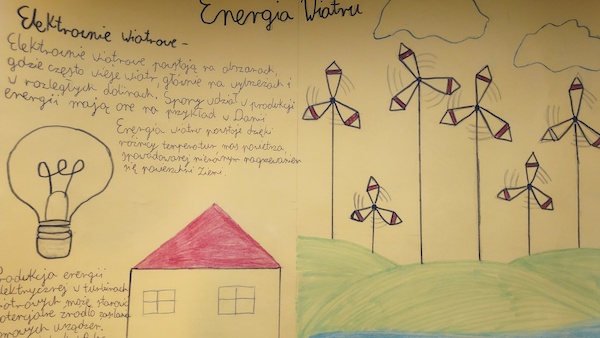 Energia Wiatru
Elektrownie wiatrowe -
Elektrownie wiatrowe powstają na obszarach,
gdzie często wieje wiatr, głównie na wybrzeżach i
w rozległych dolinach. Spory udział w produkcji
energii mają one na przykład w Danii
Energia wiatru powstaje dzięki
różnicy temperatur mas powietrza,
spowodowanej nierównym nagrzewaniem
się powierzchni Ziemi.
Produkcja energii
elektrycznej w turbinach
wiatrowych może stanowić
potencjalne źródło zasilania
domowych urządzeń.